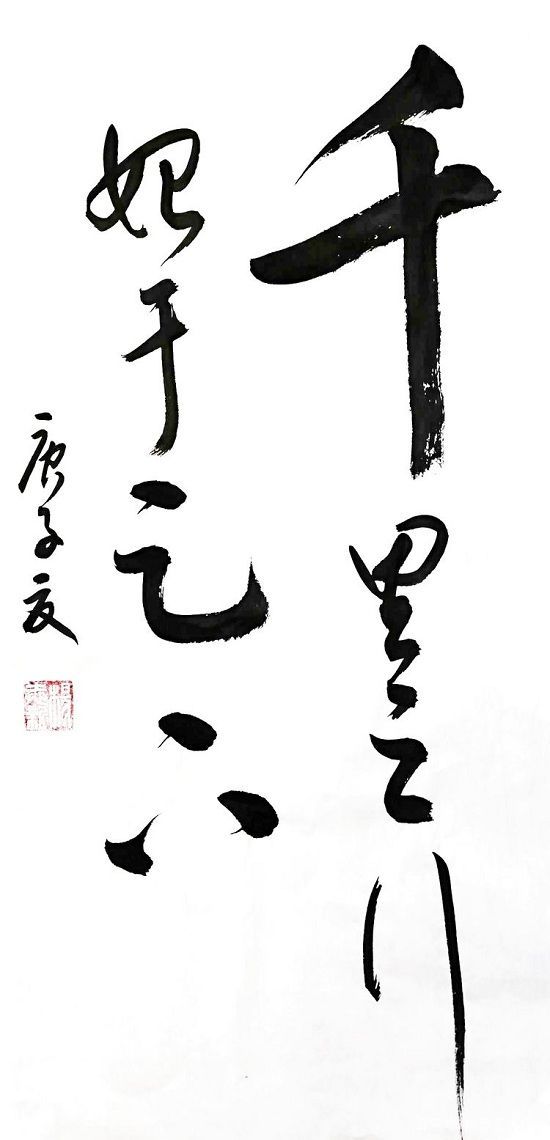 千里之行
始于足下
庚子夏